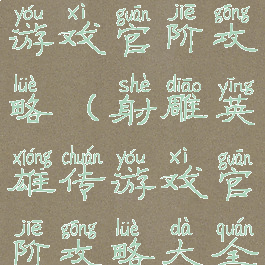 yóu xì guān jiē gōng
游戏官阶攻
lüè shè diāo yīng
略(射雕英
xióng chuán yóu xì guān
雄传游戏官
jiē gōng lüè dà quán
阶攻略大全